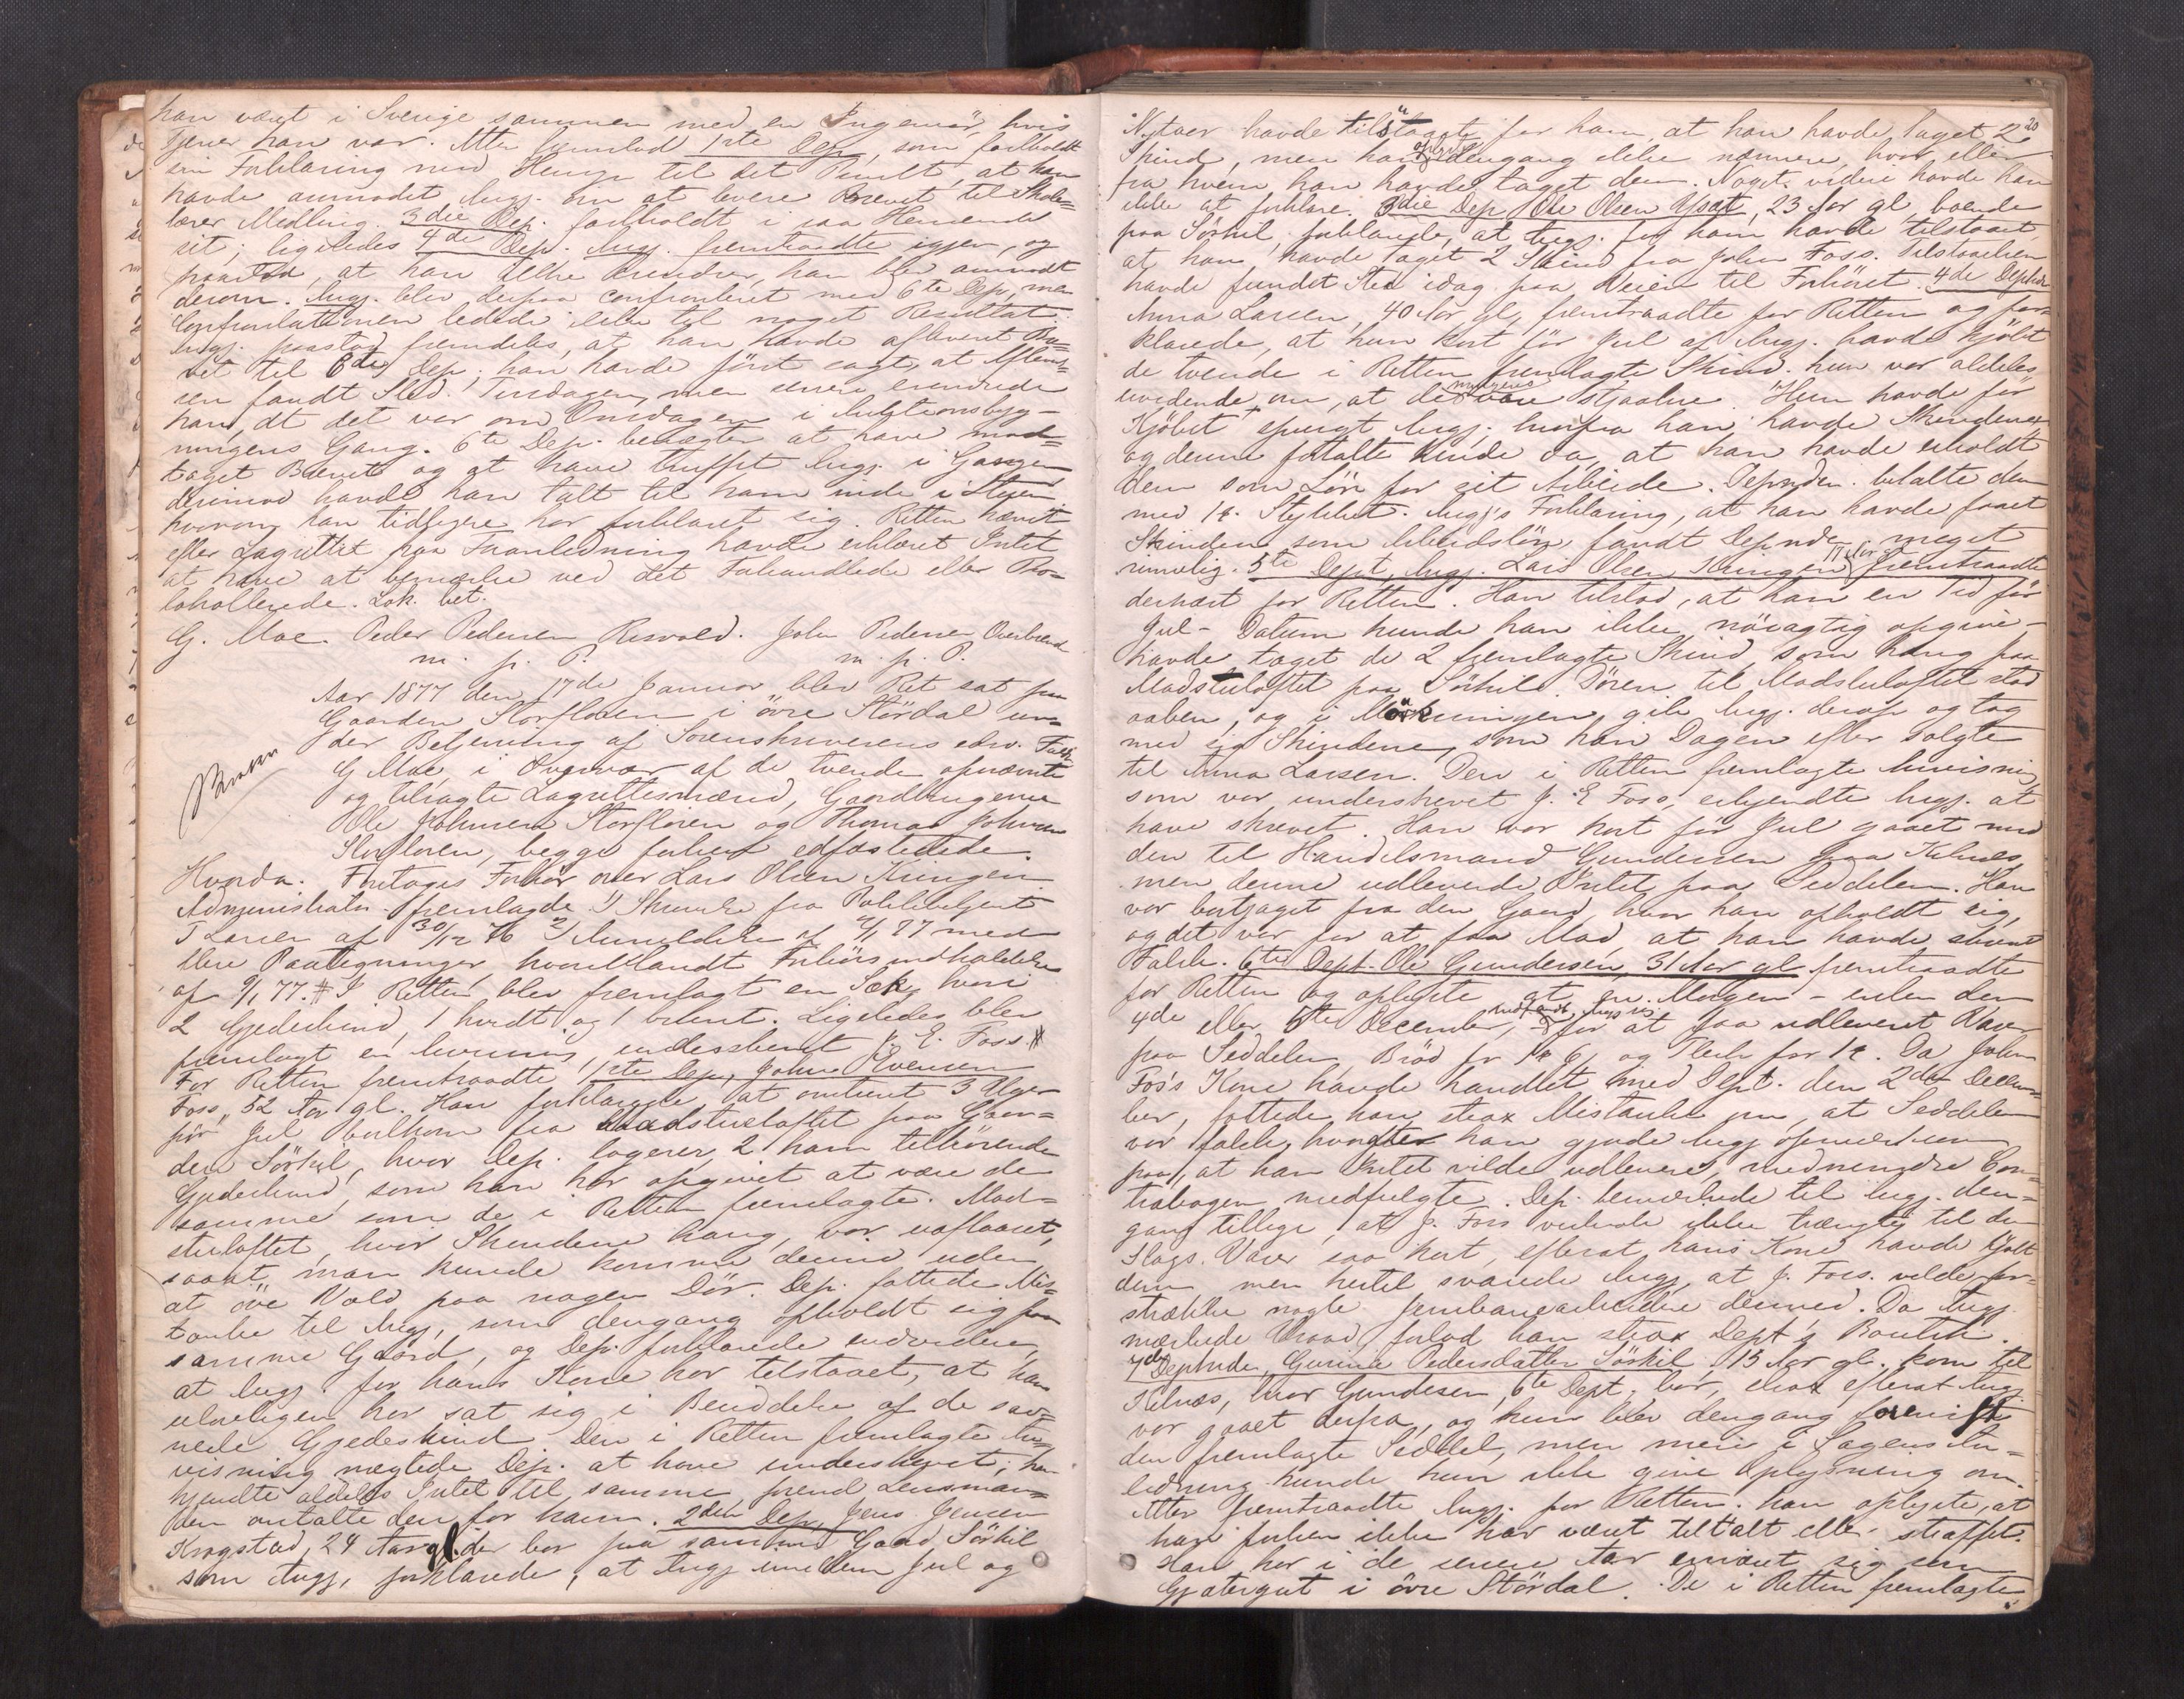 han været i Sverige sammen med en Ingeniør, hvis
Tjener han var. Atter fremstod 1ste Dep., som forholdt
sin Forklaring med Hensyn til det Punkt, at han
havde anmodet Angj. om at levere Brevet til Skole-
lærer Medling. 3die Dep. forholdt i saa Henseende
sit; ligeledes 4de Dep. Angj. fremtraadte igjen, og
paastod, at han ikke erindrer, han blev anmodet
derom. Angj. blev derpaa confronteret med 6te Dep., men
Confrontationen ledede ikke til noget Resultat.
Angj. paastod fremdeles, at han havde afleveret Bre-
vet til 6te Dep.; han havde først sagt, at Afleverin-
gen fandt Sted Tirsdagen, men senere erindrede
han, at det var om Onsdagen i Auktionsbyg-
ningens Gang. 6te Dep. benægter at have mod-
taget Brevet og at have truffet Angj. i Gangen
derimod havde han talt til ham inde i Stuen
hvorom han tidligere har forklaret sig. Retten hævet
efter Lagrettet paa Foranledning havde erklæret Intet
at have at bemærke ved det Forhandlede eller Pro-
tokollerede. Lok. bet.
G. Moe. Peder Pedersen Risvold. John Pedersen Overbrend
m. p. P. m. p. P.
Aar 1877 den 17de Januar blev Ret sat paa
Gaarden Storfloren i øvre Størdal un-
der Betjening af Sorenskriverens edsv. Fuldm.
G Moe, i Overvær af de tvende opnævnte
og tilsagte Lagrettesmænd, Gaardbrugerne
Ole Johnsen Storfloren og Thomas Johnsen
Storfloren, begge forhen edfæstede.
Hvorda. Foretoges Forhør over Lars Olsen Kringen
Administrator fremlagde 1) Skrivelse fra Politibetjent
T Larsen af 30/12 76 2) Anmeldelse af 2/1 77 med
flere Paategninger, hvoriblandt Forhørsindkaldelse
af 9/1 77. # I Retten blev fremlagt en Sæk, hvori
2 Gjedeskind, 1 hvidt og 1 brunt. Ligeledes blev
fremlagt en Anvisning, underskrevet J. E. Foss #
For Retten fremtraadte 1ste Dep, John Evensen
Foss, 52 Aar gl. Han forklarede, at omtrent 3 Uger
før Jul bortkom fra Madstueloftet paa Gaar-
den Sørkil, hvor Dep. logerer, 2 ham tilhørende
Gjedeskind, som han har opgivet at være de
samme som de i Retten fremlagte. Mad-
stueloftet, hvor Skindene hang, var uaflaaset,
saaat man kunde komme derind uden
at øve Vold paa nogen Dør. Dep. fattede Mis-
tanke til Angj., som dengang opholdt sig paa
samme Gaard, og Dep. forklarede endvidere,
at Angj. for hans Kone har tilstaaet, at han
ulovligen har sat sig i Besiddelse af de sav-
nede Gjedeskind. Den i Retten fremlagte An-
visning nægtede Dep. at have underskrevet; han
kjendte aldeles Intet til samme førend Lensman-
den omtalte den for ham. 2den Dep, Jens Jensen
Krogstad, 24 Aar gl. der bor paa samme Gaard Sørkil
som Angj., forklarede, at Angj imellem Jul og
20
Nytaar havde tilstaaet for ham, at han havde taget 2
Skind, men han opgav dengang ikke nærmere, hvor eller
fra hvem han havde taget dem. Noget videre havde han
ikke at forklare. 3die Dep Ole Olsen Ysat, 23 Aar gl, boende
paa Sørkil, forklarede, at Angj. for ham havde tilstaaet,
at han havde taget 2 Skind fra John Foss. Tilstaaelsen
havde fundet Sted idag paa Veien til Forhøret. 4de Deptinde
Anna Larsen, 40 Aar gl, fremtraadte for Retten og for-
klarede, at hun kort før Jul af Angj. havde kjøbt
de tvende i Retten fremlagte Skind. hun var aldeles
uvidende om, at de vare stjaalne. Hun havde før
Kjøbet spurgt Angj. hvorfra han havde Skindene,
og denne fortalte hende da, at han havde erholdt
dem som Løn for sit Arbeide. Depnden. betalte dem
med 1 ℔. Stykket. Angj's Forklaring, at han havde faaet
Skindene som Arbeidsløn fandt Depnden meget
rimelig. 5te Dept, Angj. Lars Olsen Kringen 17 Aar fremtraadte
dernæst for Retten. Han tilstod, at han en Tid før
Jul - Datum kunde han ikke nøiagtig opgive -
havde taget de 2 fremlagte Skind, som hang paa
Madstueloftet paa Sørkil. Døren til Madstueloftet stod
aaben, og i Mørkningen gik Angj. derop og tog
med sig Skindene, som han Dagen efter solgte
til Anna Larsen. Den i Retten fremlagte Anvisning
som var underskrevet J. E Foss, erkjendte Angj. at
have skrevet. Han var kort før Jul gaaet med
den til Handelsmand Gundersen paa Kilnes,
men denne udleverede Intet paa Seddelen. Han
var bortjaget fra den Gaard, hvor han opholdt sig,
og det var for at faa Mad, at han havde skrevet
falsk. 6te Dept. Ole Gundersen, 31 Aar gl fremtraadte
for Retten og oplyste at en Morgen - enten den
4de eller 5te December, indfandt Angj. sig for at faa udleveret Varer
paa Seddelen, Brød for 1 ℔ 6 og Flesk for 1 ℔. Da John
Foss's Kone havde handlet med Dept. den 2den Decem-
ber, fattede han strax Mistanke om, at Seddelen
var falsk, hvorefter han gjorde Angj opmærksom
paa, at han Intet vilde udlevere, medmindre Con-
trabogen medfulgte. Dep. bemærkede til Angj. den-
gang tillige, at J. Foss vistnok ikke trængte til den
Slags Varer saa kort, efterat hans Kone havde kjøbt
dem, men hertil svarede Angj, at J. Foss vilde for-
strække nogle Jernbanearbeidere dermed. Da Angj.
mærkede Uraad, forlod han strax Dept's Boutik.
7de Deptinde, Gurine Pedersdatter Sørkil 15 Aar gl. kom til
Kilnæs, hvor Gundersen, 6te Dept, bor, strax efterat Angj.
var gaaet derfra, og hun blev dengang forevist
den fremlagte Seddel, men mere i Sagens An-
ledning kunde hun ikke give Oplysning om.
Atter fremtraadte Angj. for Retten. han oplyste, at
han forhen ikke har været tiltalt eller straffet.
Han har i de senere Aar ernæret sig som
Gjætergut i øvre Størdal. De i Retten fremlagte